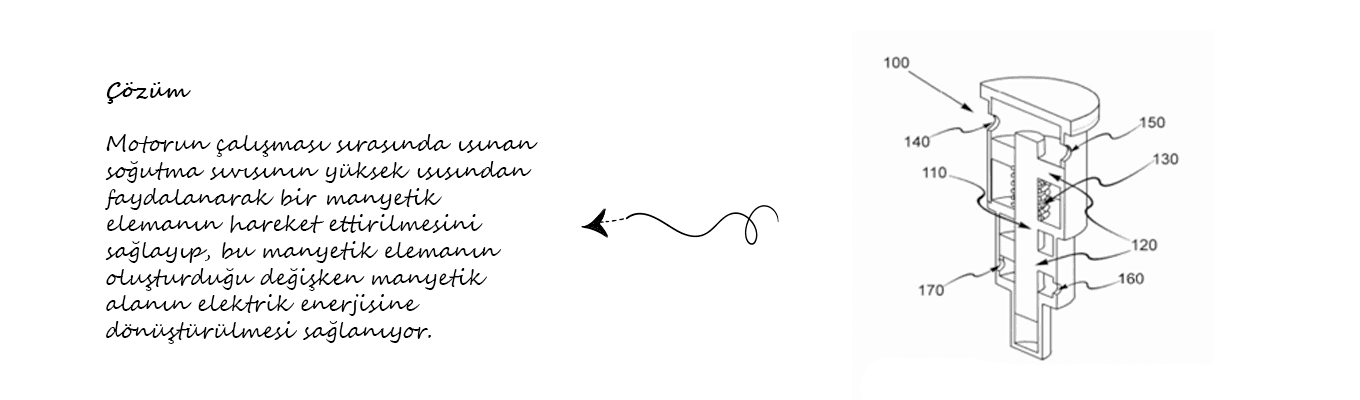 Çözüm
Motorun çalışması sırasında ısınan
soğutma sıvısının yüksek ısısından
faydalanarak bir manyetik
elemanın hareket ettirilmesini
sağlayıp, bu manyetik elemanın
oluşturduğu değişken manyetik
alanın elektrik enerjisine
dönüştürülmesi sağlanıyor.
100
140
150
130
110
120
170
160